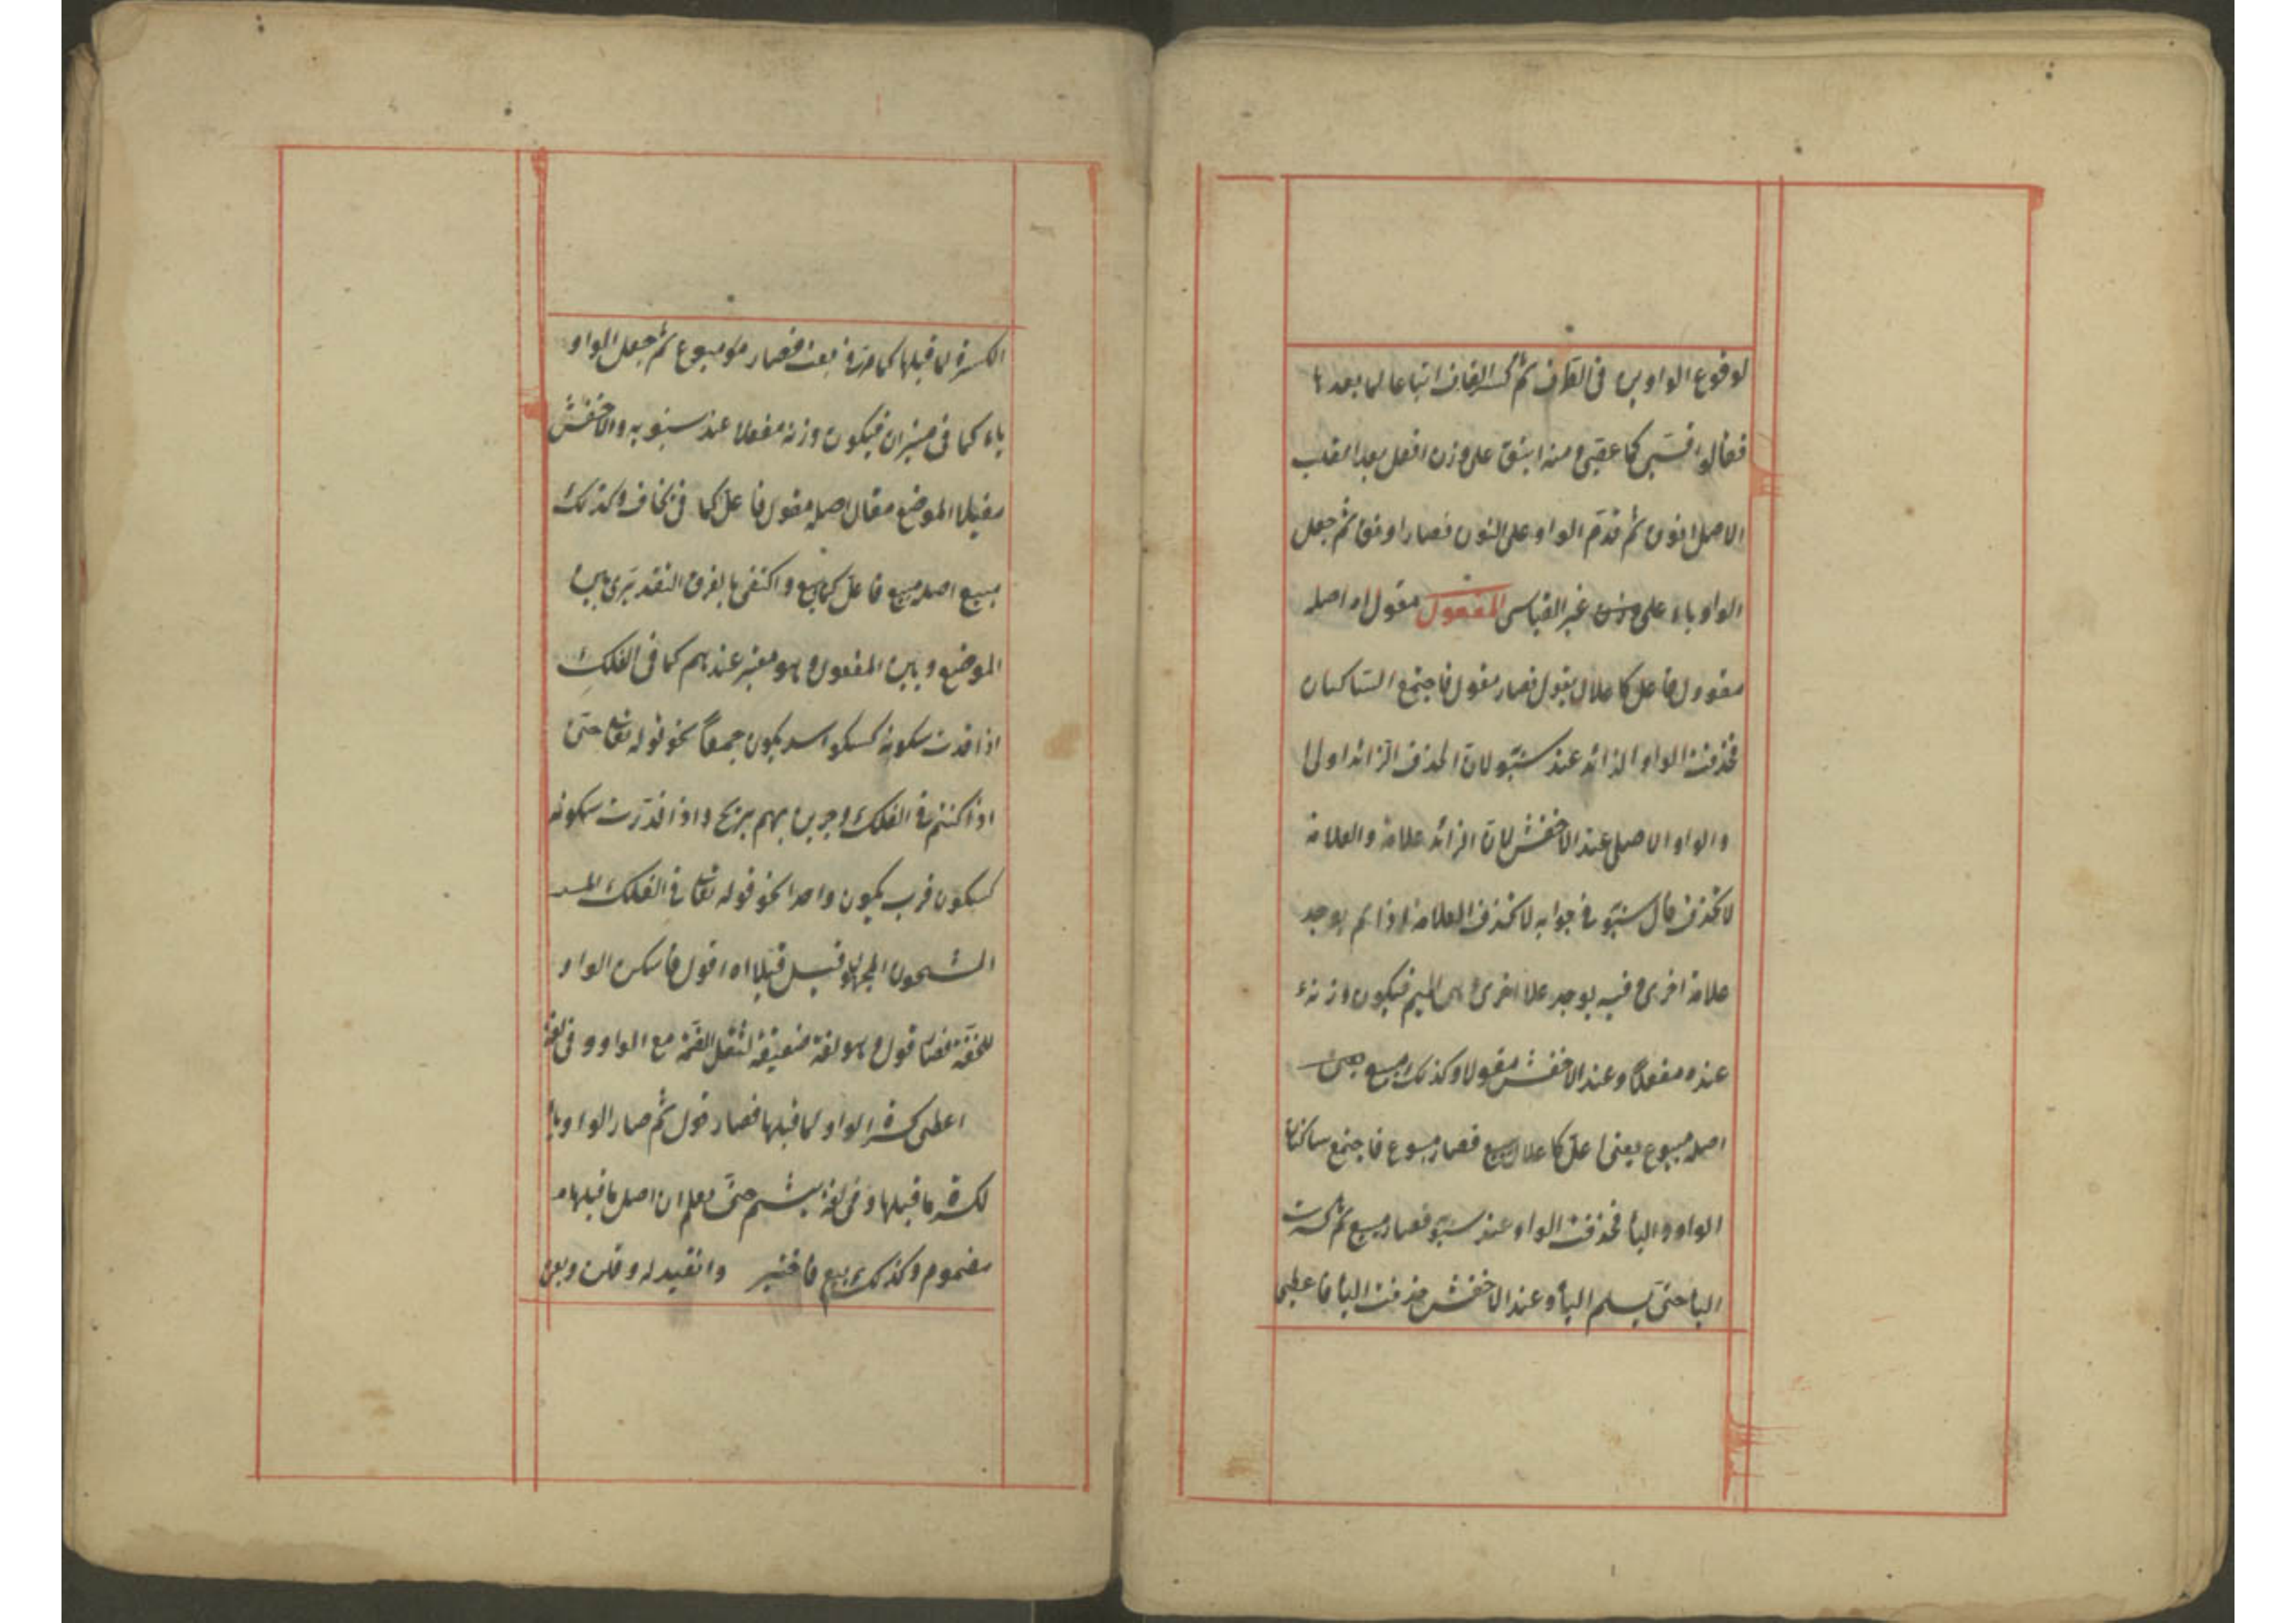 لوقوع الواوين فى الطرف ثم كسر القاف اتباعا لما بعدها
فقالوا قسى كما عصى ومنه اينق على وزن افعل بعد القلب
الاصل انوق ثم قدم الواو على النون فصار اونق ثم جعل
الواو ياء على غير القياس المفعول مقول اه اصله
مقوول فاعل كاعلال يقول فصار مقوول فاجتمع الساكنان
فحذفت الواو الزائد عند سيبو لان الحذف الزائد اولى
والواو الاصلى عند الاخفش لان الزائد علامة والعلامة
لا تحذف قال سيبو فى جوابه لا تحذف العلامة اذا لم يوجد
علامة اخرى وفيه يوجد علا اخرى وهى الميم فيكون وزنه
عنده مفعلا وعند الاخفش مفولا وكذلك مبيع يعنى
اصله مبيوع يعنى اعل كاعلال يبيع فصار مبيوع فاجتمع ساكنان
الواو والياء فحذفت الواو عند سيبو فصار مبيع ثم كسرت
الباء حتى يسلم الياء وعند الاخفش حذفت الياء فاعطى
الكسرة لما قبلها كما مر فى بعت فصار موبوع ثم جعل الواو
ياء كما فى ميزان فيكون وزنه مفعلا عند سيبويه والاخفش
مفيلا الموضع مقال اصله مقول فاعل كما فى يخاف وكذلك
مبيع اصله مبيع فاعل كما يبيع واكتفى بالفرق التقديرى بين
الموضع وبين المفعول وهو معتبر عندهم كما فى الفلك
اذا قدرت سكونه كسكون اسد يكون جمعا نحو قوله تعالى حتى
اذا كنتم فى الفلك وجرين بهم بريح واذا قدرت سكونه
كسكون قرب يكون واحدا نحو قوله تعالى فى الفلك
المشحون المجهول قيل قيلا اه اقول فاسكن الواو
للخفة فصار قول وهو لغة ضعيفة لثقل الضمة مع الواو وفى لغة
اعطى كسرة الواو لما قبلها فصار قول ثم صار الواو ياء
لكسرة ما قبلها وفى لغة يشم حتى يعلم ان اصل ما قبلها
مضموم وكذلك بيع فاختير وانقيد له وقلن وبعن